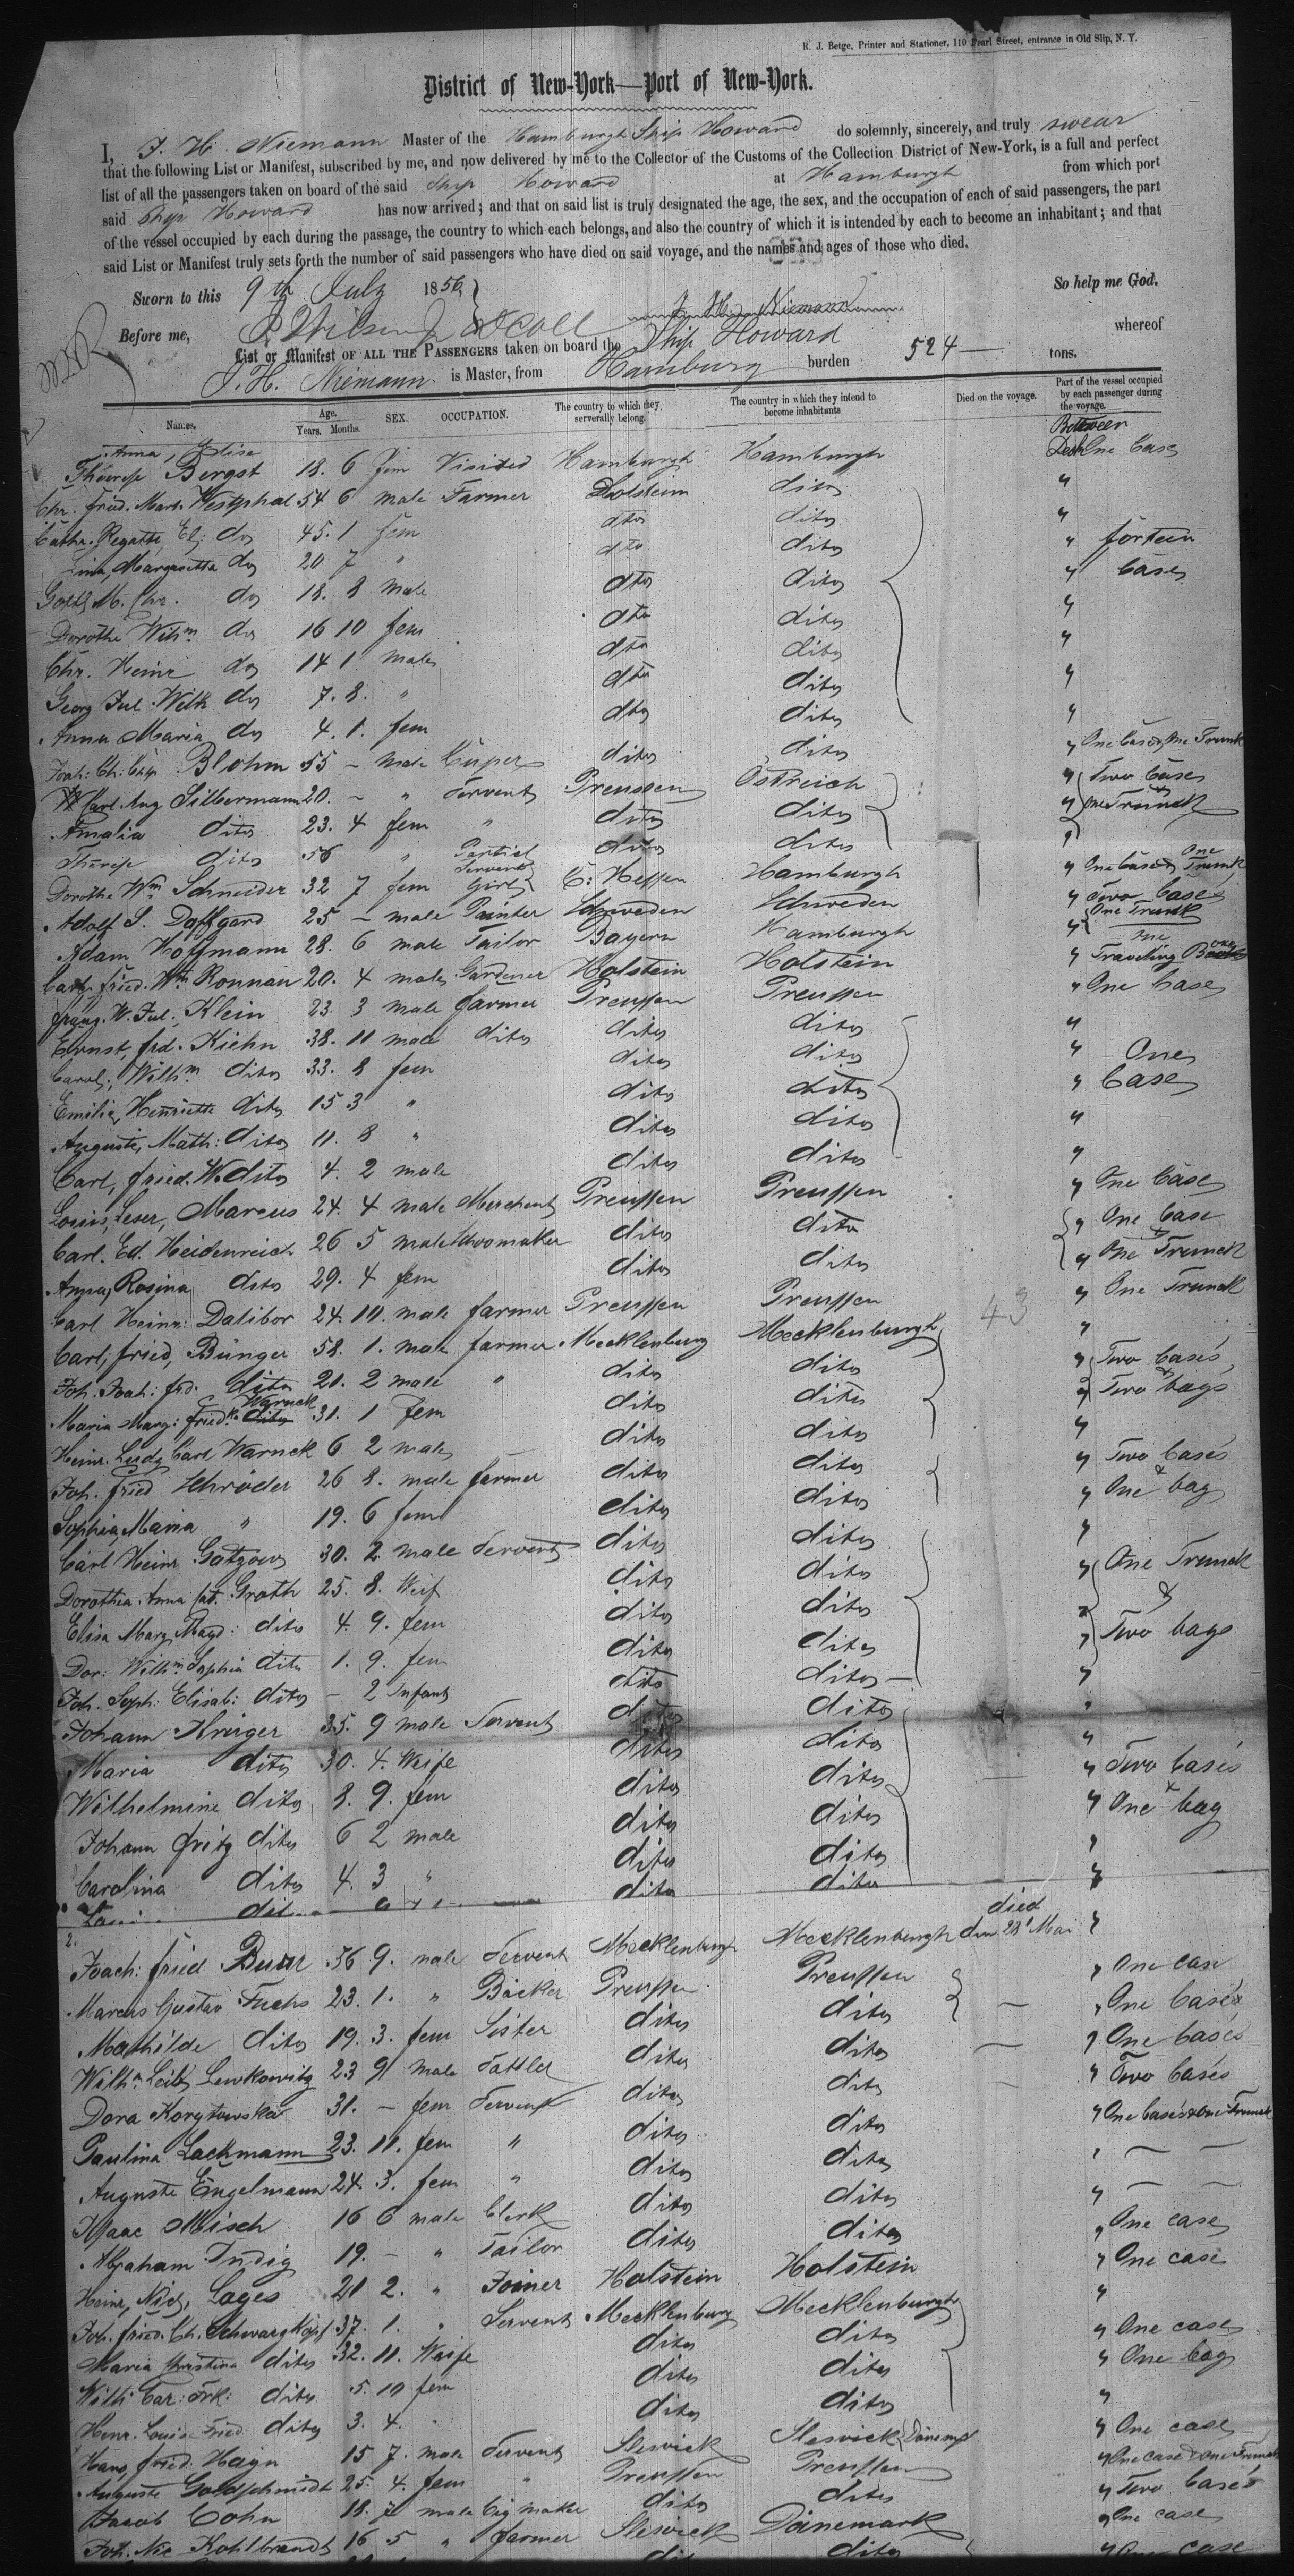 R. J. Betge, Printer and Stationer, 110 Pearl Street, entrance in Old Slip, N. Y.
District of New-York—Port of New-York.
I, J. H. Niemann Master of the Hamburgh Ship Howard do solemnly, sincerely, and truly swear
that the following List or Manifest, subscribed by me, and now delivered by me to the Collector of the Customs of the Collection District of New-York, is a full and perfect
list of all the passengers taken on board of the said Ship Howard at Hamburgh from which port
said Ship Howard has now arrived; and that on said list is truly designated the age, the sex, and the occupation of each of said passengers, the part
of the vessel occupied by each during the passage, the country to which each belongs, and also the country of which it is intended by each to become an inhabitant; and that
said List or Manifest truly sets forth the number of said passengers who have died on said voyage, and the names and ages of those who died.
Sworn to this 9th July 1856 So help me God.
J. H. Niemann
Before me,
List or Manifest OF ALL THE PASSENGERS taken on board the Ship Howard whereof
J. H. Niemann is Master, from Hamburg burden 524 — tons.
Names. Age. Years. Months. SEX. OCCUPATION. The country to which they serverally belong. The country in which they intend to become inhabitants Died on the voyage. Part of the vessel occupied by each passenger during the voyage.
Between
Anna, Elise
Therese Bergst 18. 6 fem Visited Hamburgh Hamburgh Deck One Case
Chr. Fried. Mart. Westphal 54 6 male Farmer Holstein ditos "
Cathr. Regatte, El: do 45. 1 fem dto ditos "
Lina, Margaretta do 20 7 " dto ditos " forteen
Gottl. M. Chr. do 18. 8 male dto ditos " Cases
Dorothe Wilhm do 16 10 fem dto ditos "
Chr. Heinr do 14 1 male dto ditos "
Georg Jul. Wilh do 7. 8. " dto ditos "
Anna Maria do 4. 1. fem dto ditos "
Joah: Ch: Blohm 55 — male Cuper ditos ditos " One Case & One Trunk
Carl Aug Silbermann 20. — " Servent Preussen Ostreich " Two Cases
Amalia ditos 23. 4 fem " ditos ditos " One Trunck
Therese ditos 56 " ditos ditos "
Dorothe Wm Schneider 32 7 fem Servent Girl C: Hessen Hamburgh " One Case & One Trunk
Adolf S. Daffgard 25 — male Painter Schweden Schweden " Two Cases
Adam Hoffmann 28. 6 male Tailor Bayern Hamburgh " One Trunk
Carl fried. Wm Ronnau 20. 4 male Gardener Holstein Holstein " One Traveling
Franz. W. Jul: Klein 23. 3 male farmer Preussen Preussen " One Case
Ernst, frd. Kiehn 38. 11 male ditos ditos ditos "
Carol:, Wilhm ditos 33. 8 fem ditos ditos " One
Emilie, Henriette ditos 15 3 " ditos ditos " Case
Auguste, Math: ditos 11. 8 " ditos ditos "
Carl, fried. W. ditos 4. 2 male ditos ditos "
Louis, Leser, Marcus 24. 4 male Merchent Preussen Preussen " One Case
Carl. Ed. Heidenreich 26 5 male Schoomaker ditos ditos " One Case
Anna, Rosina ditos 29. 4 fem ditos ditos " One Trunck
Carl Heinr: Dalibor 24. 10. male farmer Preussen Preussen 43 " One Trunck
Carl, fried, Bünger 58. 1. male farmer Mecklenburg Mecklenburgh "
Joh. Joah: frd. ditos 21. 2 male " ditos ditos " Two Cases
Maria Marg: friedke Warnck 31. 1 fem ditos ditos " Two bags
Heinr. Ludg Carl Warnck 6 2 male ditos ditos "
Joh. fried Schröder 26 8. male farmer ditos ditos " Two Cases
Sophia, Maria " 19. 6 fem ditos ditos " One & bag
Carl Heinr Gatzow 30. 2. male Servent ditos ditos "
Dorothea Anna Groth 25. 8. Weif ditos ditos " One Trunck
Elisa Marg. Magd: ditos 4. 9. fem ditos ditos " &
Dor: Wilhm Sophia ditos 1. 9. fem ditos ditos " Two bags
Joh. Soph: Elisab: ditos — 2 Infant ditos ditos — "
Johann Krüger 35. 9 male Servent ditos ditos "
Maria ditos 30. 4. Weife ditos ditos "
Wilhelmine ditos 8. 9. fem ditos ditos " Two Cases
Johann fritz ditos 6 2 male ditos ditos " One & bag
Carolina ditos 4. 3 " ditos ditos "
ditos ditos ditos "
2. died
Joach: fried Buur 56 9. male Servent Mecklenburgh Mecklenburgh den 28t Mai "
Marcus Gustav Fuchs 23. 1. " Bäcker Preussen Preussen " One case
Mathilde ditos 19. 3. fem Sister ditos ditos — " One Cases
Wilhm Leib Lewkowitz 23 9 male Sattler ditos ditos — " One Cases
Dora Korytowska 31. — fem Servent ditos ditos — " Two Cases
Paulina Lackmann 23. 11. fem " ditos ditos " One Cases & One Trunck
Auguste Engelmann 24. 3. fem " ditos ditos " — —
Isaac Misch 16 6 male Clerk ditos ditos " — —
Abraham Indig 19. — " Tailor ditos ditos " One case
Heinr, Nicl, Lages 21 2. " Joiner Holstein Holstein " One case
Joh. fried. Ch. Schwarzkopf 37. 1. " Servent Mecklenburg Mecklenburgh "
Maria Christina ditos 32. 11. Waife ditos ditos " One case
Wilh: Car: Frk: ditos 5. 10 fem ditos ditos " One bag
Henr. Louise Fried. ditos 3. 4. " ditos ditos "
Hans, fried. Hagn 15 7. male Servent Sleswick Sleswick " One case
Auguste Goldschmidt 25. 4. fem " Preussen Preussen " One case & One Trunck
Jacob Cohn 18. 7 male Cig maker ditos ditos " Two Cases
Joh. Nic Kohlbrandt 16 5 " farmer Sleswick Dänemark " One case
ditos " One case